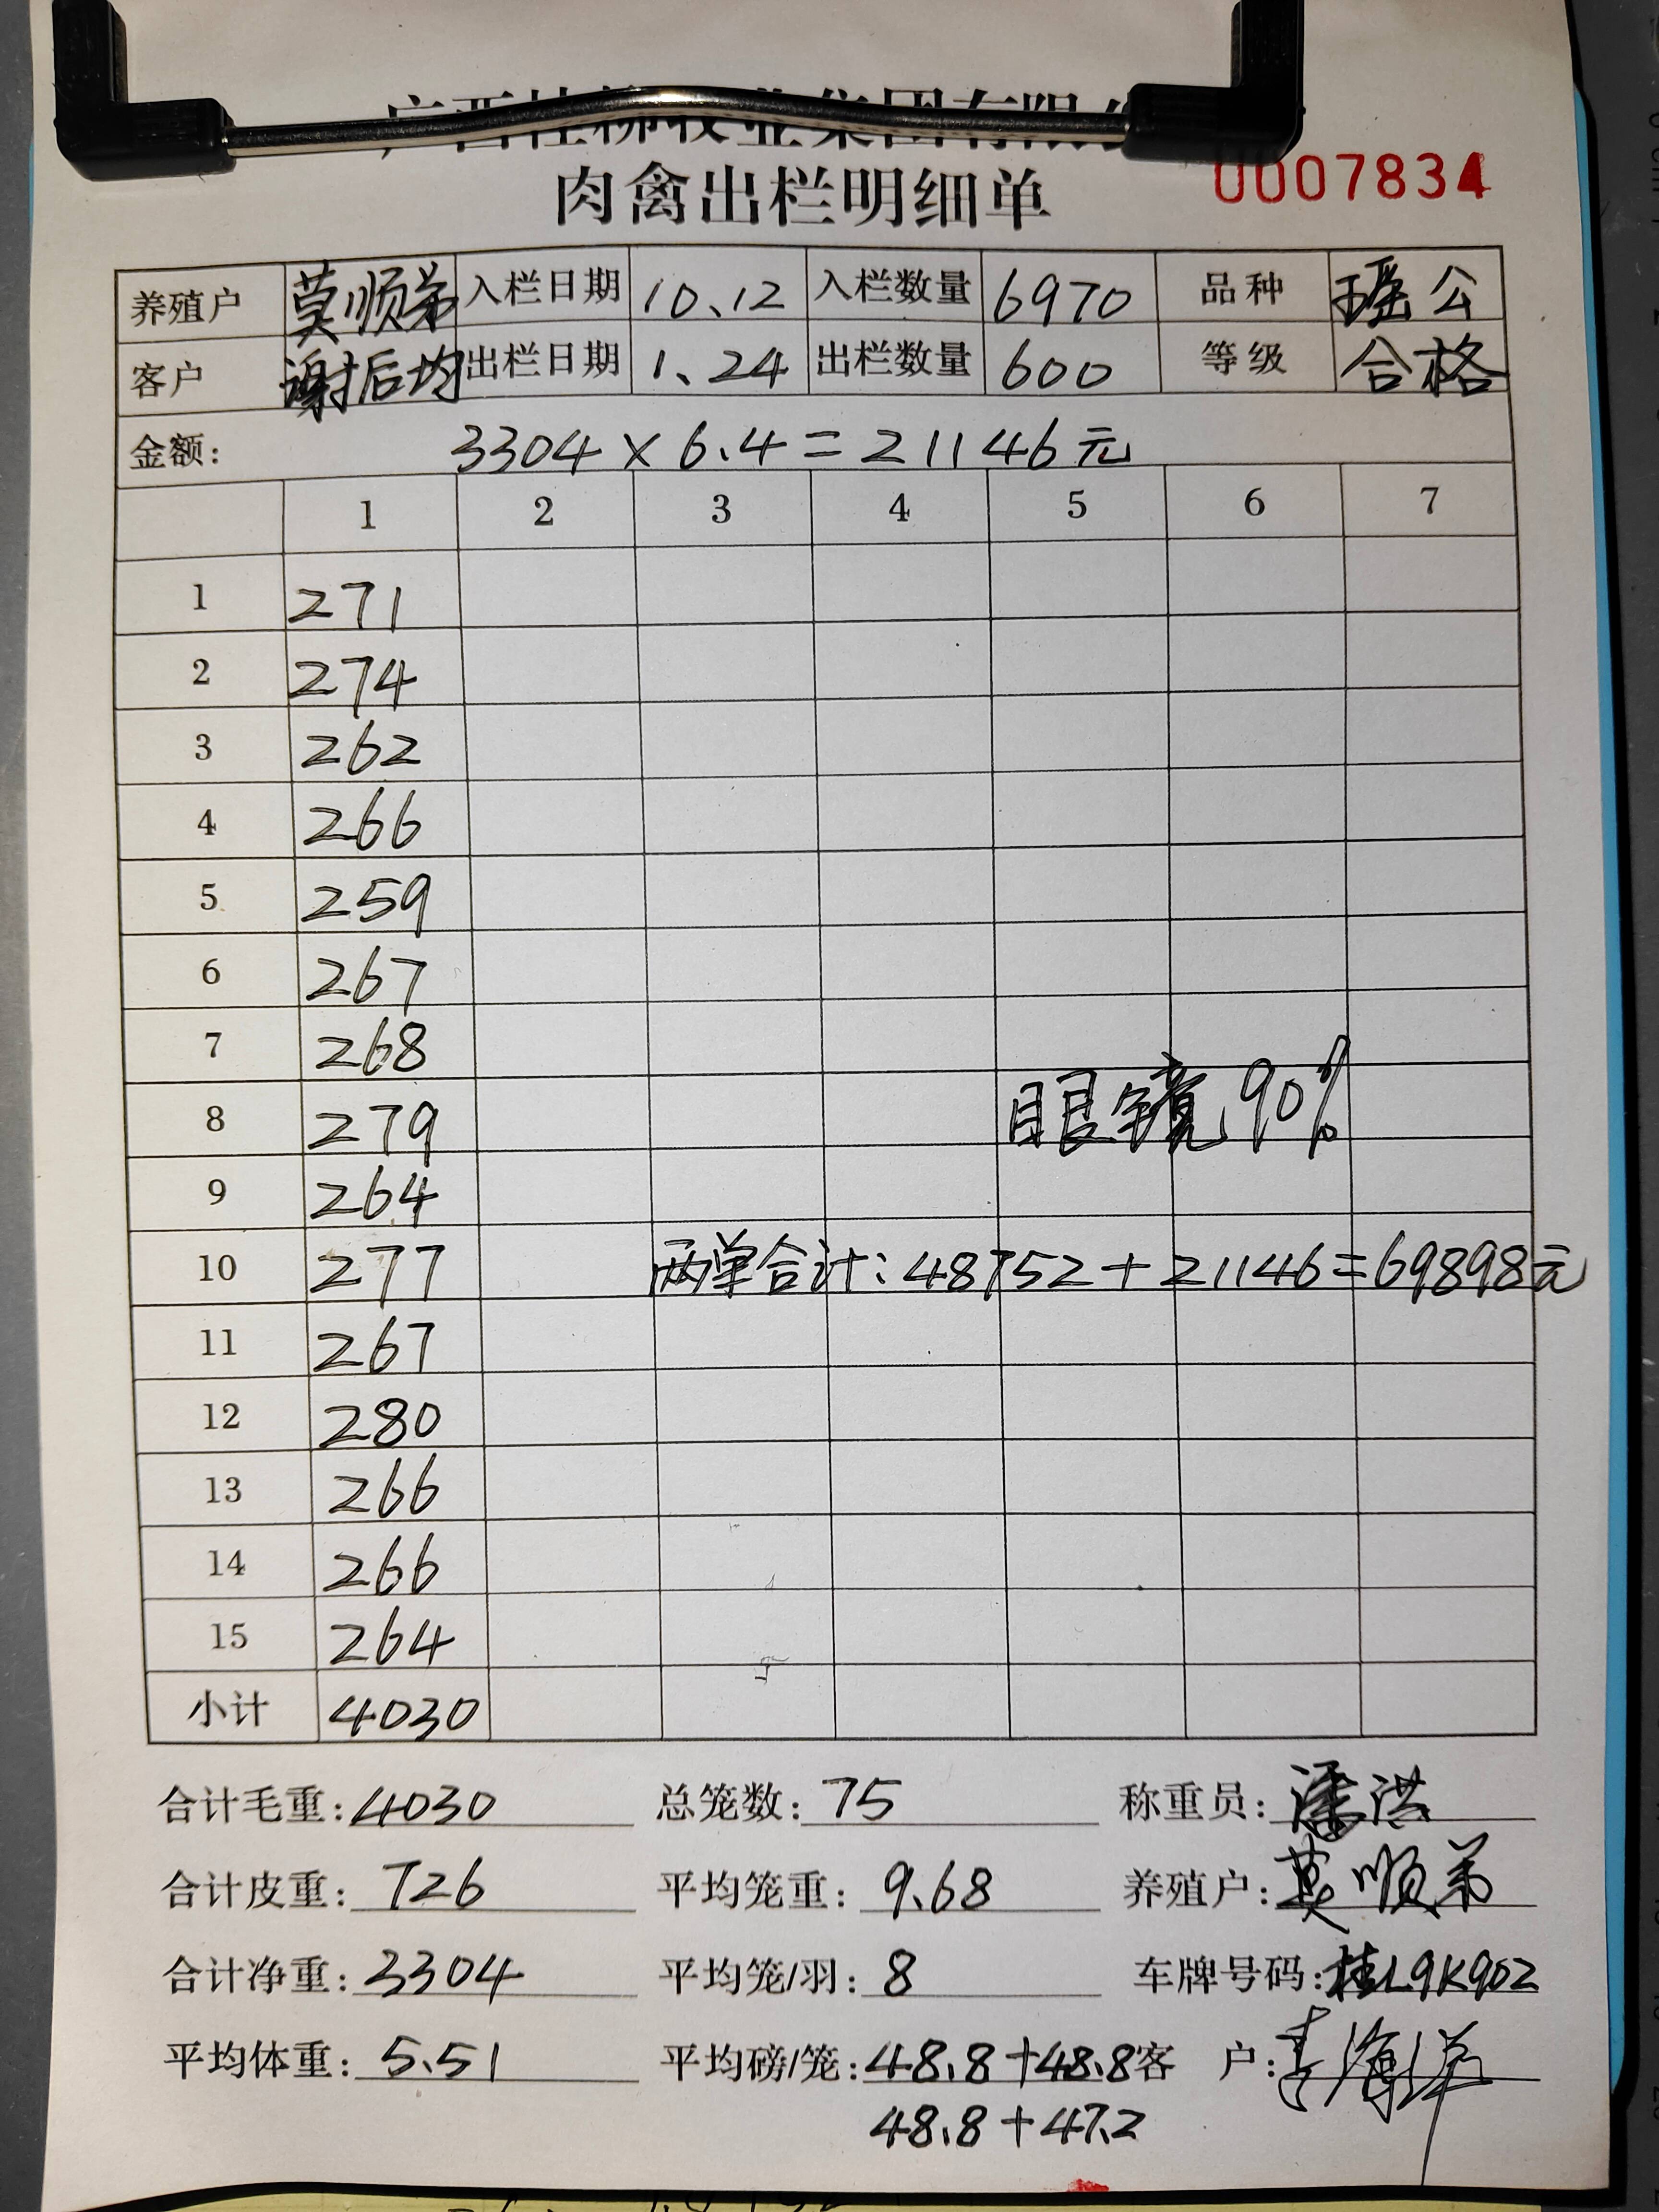 肉禽出栏明细单
0007834
养殖户 莫顺弟 入栏日期 10.12 入栏数量 6970 品种 瑶公
客户 谢后均 出栏日期 1.24 出栏数量 600 等级 合格
金额: 3304×6.4=21146元
1 2 3 4 5 6 7
1 271
2 274
3 262
4 266
5 259
6 267
7 268
8 279 眼镜90%
9 264
10 277 两单合计:48752+21146=69898元
11 267
12 280
13 266
14 266
15 264
小计 4030
合计毛重:4030 总笼数:75 称重员: 洪
合计皮重:726 平均笼重:9.68 养殖户:莫顺弟
合计净重:3304 平均笼/羽:8 车牌号码:桂L9K902
平均体重:5.51 平均磅/笼:48.8+48.8 客户:
48.8+47.2